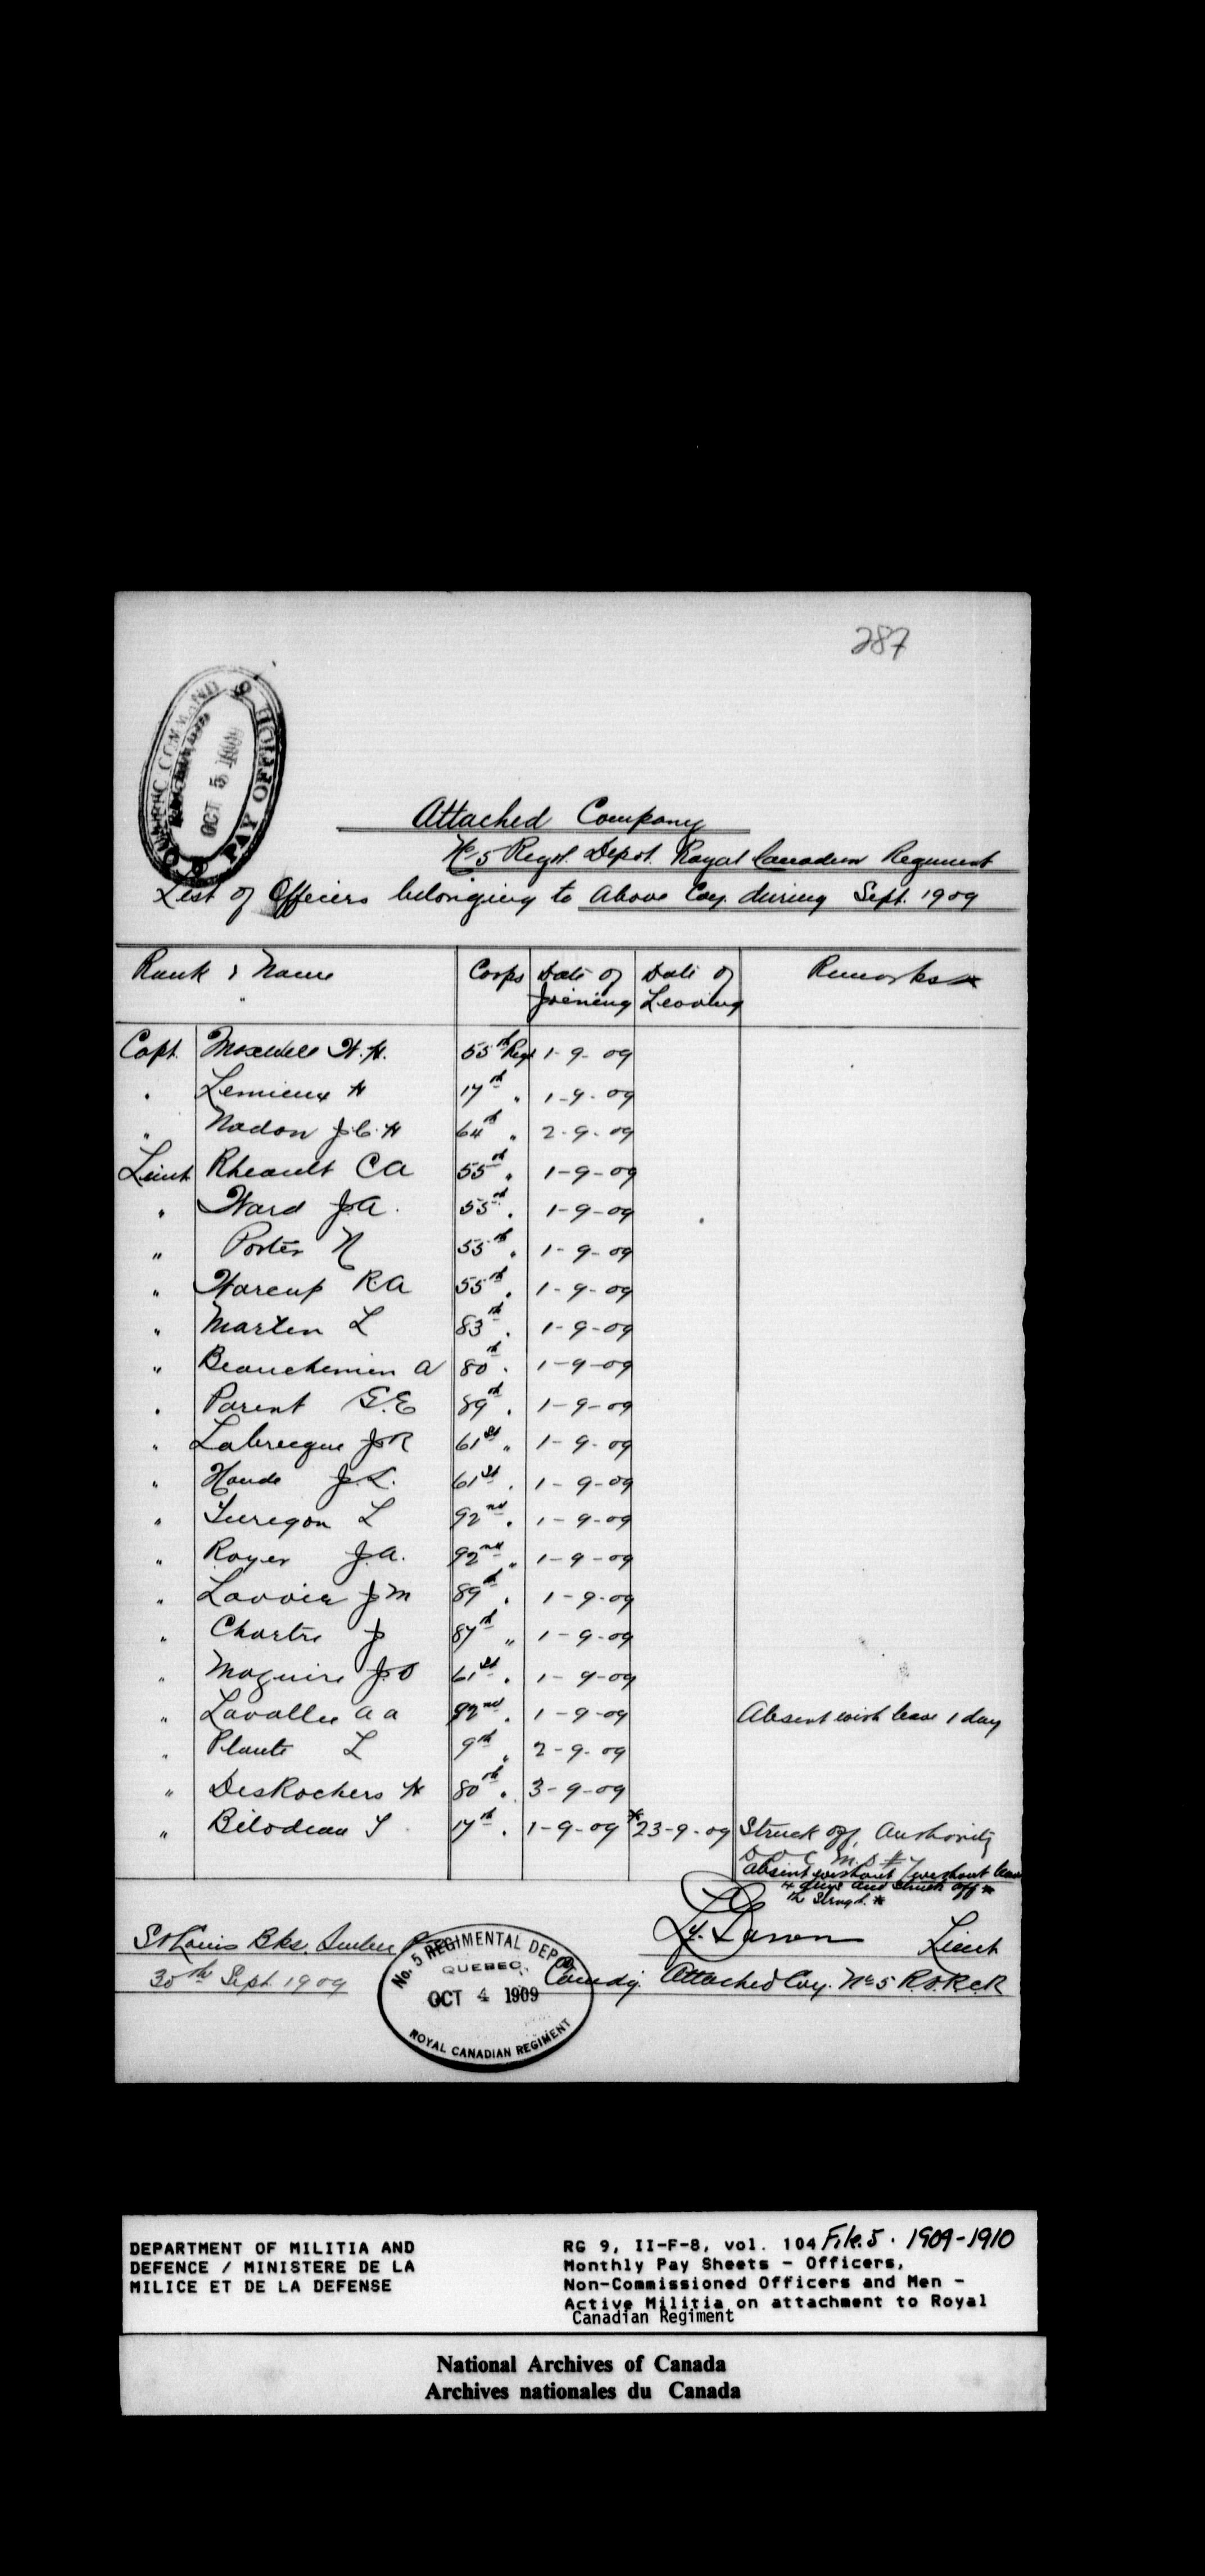 287
QUEBEC COMMAND
PAY OFFICE
OCT 5 1909
Attached Company
No 5 Regtl. Depot. Royal Canadian Regiment
List of Officers belonging to above Coy. during Sept. 1909
Rank & Name Corps Date of Joining Date of Leaving Remarks
Capt. Maxwell W.H. 55th Regt 1-9-09
" Lemieux H 17th " 1-9-09
" Nadon J.C.H 64th " 2-9-09
Lieut Rheault C A 55th " 1-9-09
" Ward J.A. 55th " 1-9-09
" Porter N 55th " 1-9-09
" Warcup R.A 55th " 1-9-09
" Marten L 83rd " 1-9-09
" Beauchemin A 80th " 1-9-09
" Parent G.E 89th " 1-9-09
" Labrecque J R 61st " 1-9-09
" Houde J.L. 61st " 1-9-09
" Turegon L 92nd " 1-9-09
" Royer J.A. 92nd " 1-9-09
" Lavoie J M 89th " 1-9-09
" Chartre J 87th " 1-9-09
" Maguire J.O 61st " 1-9-09
" Lavallee A A 92nd " 1-9-09 Absent with leave 1 day
" Plante L 9th " 2-9-09
" DesRochers H 80th " 3-9-09
" Bilodeau T 17th " 1-9-09 *23-9-09 Struck off, Authority
D O C M.D # 7
Absent without leave
4 days and struck off
St Louis Bks. Quebec
30th Sept. 1909
Lieut
Comdg. Attached Coy. No 5 R.D.R.C.R
No. 5 REGIMENTAL DEPOT
QUEBEC,
OCT 4 1909
ROYAL CANADIAN REGIMENT
DEPARTMENT OF MILITIA AND
DEFENCE / MINISTERE DE LA
MILICE ET DE LA DEFENSE
RG 9, II-F-8, vol. 104 File.5. 1909-1910
Monthly Pay Sheets - Officers,
Non-Commissioned Officers and Men -
Active Militia on attachment to Royal
Canadian Regiment
National Archives of Canada
Archives nationales du Canada